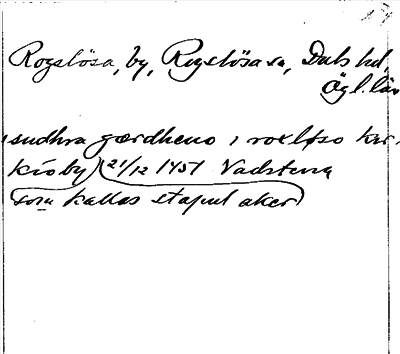 Rogslösa, by, Rogslösa sn, Dals hd,
Ög l. län
i sudhra gærdheno i roxløso kir-
kioby) 21/12 1451 Vadstena
(som kallas stapul aker)